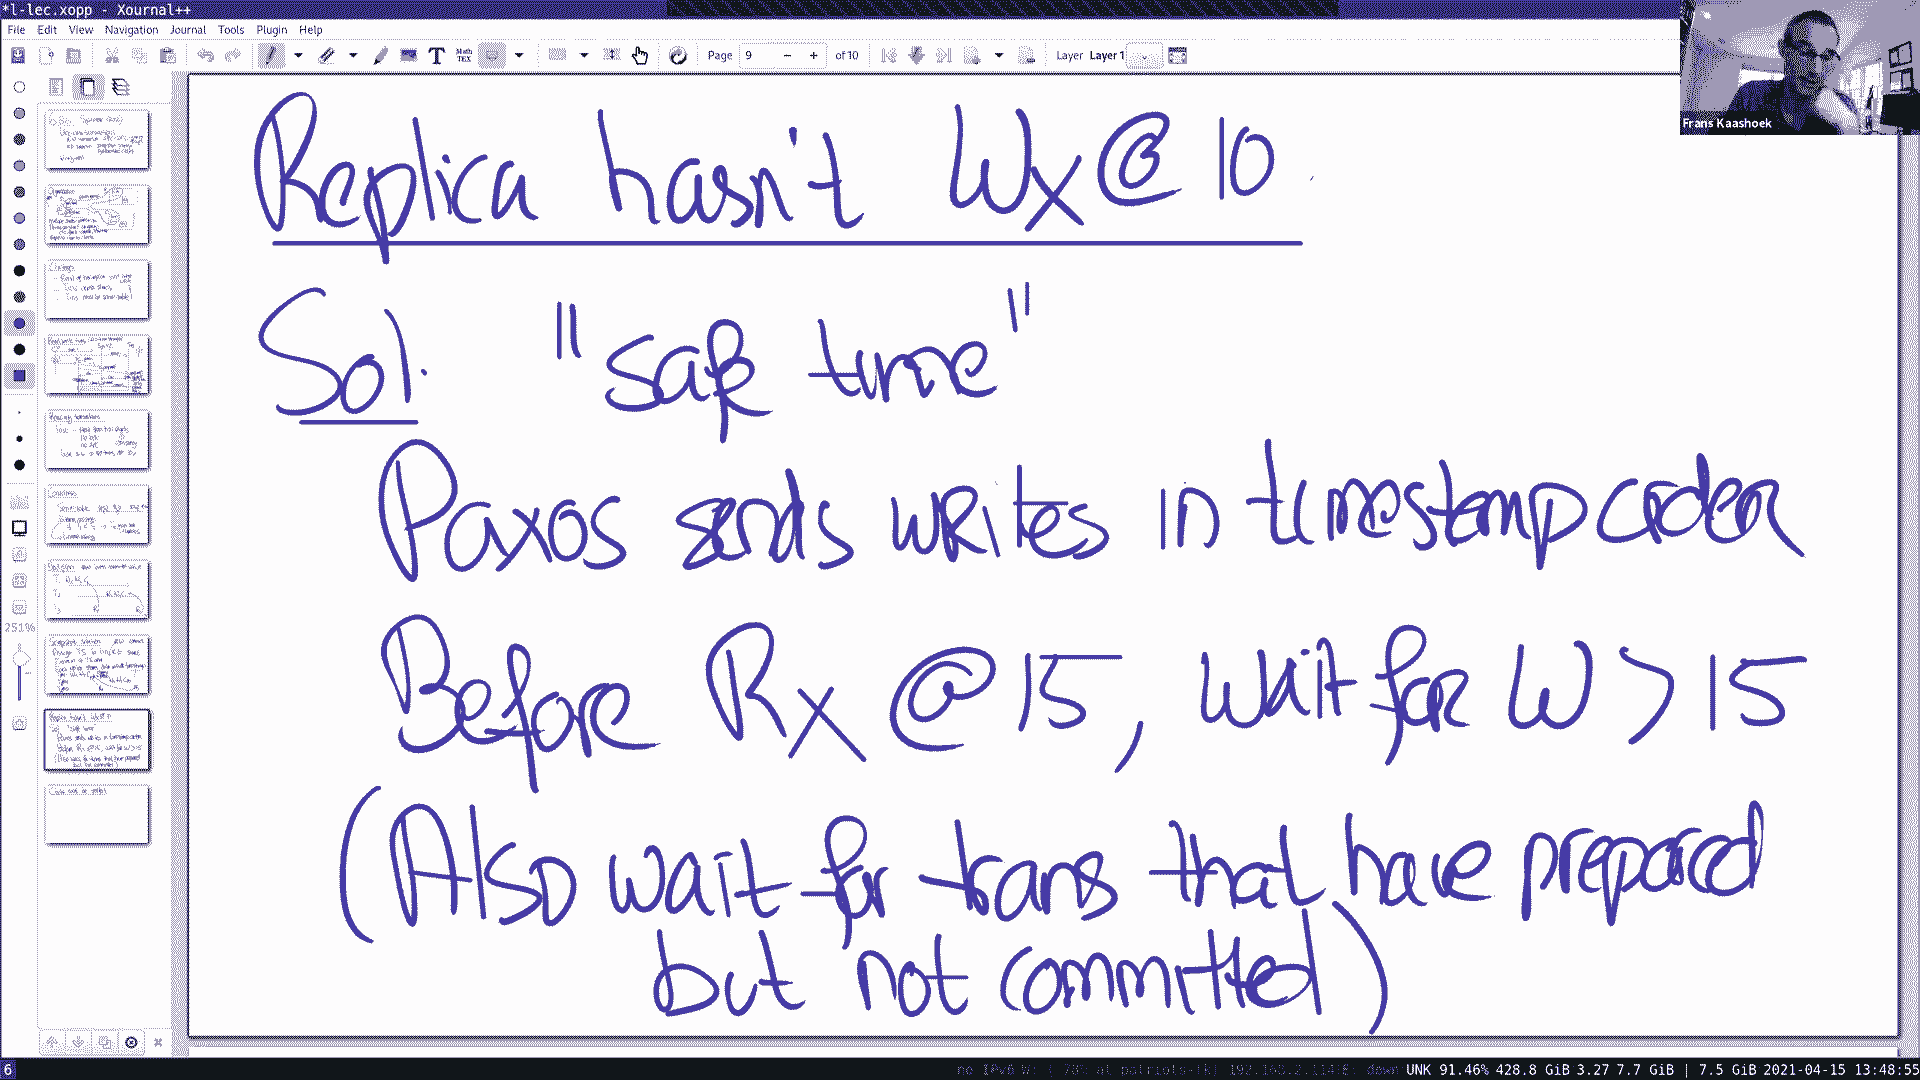 *l-lec.xopp - Xournal++
File Edit View Navigation Journal Tools Plugin Help
Page 9 of 10 Layer Layer 1
Frans Kaashoek
Replica hasn't Wx@10
Sol. "safe time"
Paxos sends writes in timestamp order
Before Rx @ 15, wait for W > 15
(Also wait for trans that have prepared
but not committed)
251%
6 UNK 91.46% 428.8 GiB 3.27 7.7 GiB | 7.5 GiB 2021-04-15 13:48:55